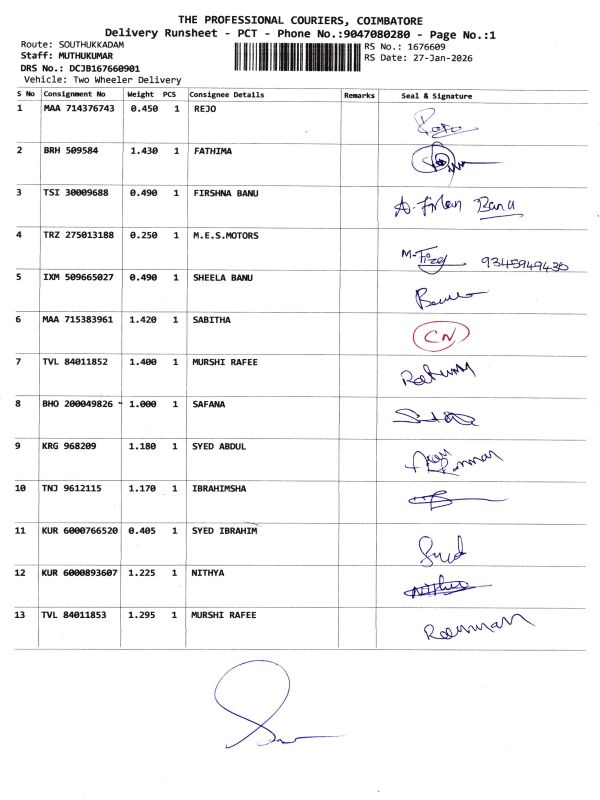 THE PROFESSIONAL COURIERS, COIMBATORE
Delivery Runsheet - PCT - Phone No.:9047080280 - Page No.:1
Route: SOUTHUKKADAM
Staff: MUTHUKUMAR
DRS No.: DCJB167660901
Vehicle: Two Wheeler Delivery
RS No.: 1676609
RS Date: 27-Jan-2026
S No Consignment No Weight PCS Consignee Details Remarks Seal & Signature
1 MAA 714376743 0.450 1 REJO
2 BRH 509584 1.430 1 FATHIMA
3 TSI 30009688 0.490 1 FIRSHNA BANU Banu
4 TRZ 275013188 0.250 1 M.E.S.MOTORS
9345949430
5 IXM 509665027 0.490 1 SHEELA BANU
6 MAA 715383961 1.420 1 SABITHA CN
7 TVL 84011852 1.400 1 MURSHI RAFEE
8 BHO 200049826 1.000 1 SAFANA
9 KRG 968209 1.180 1 SYED ABDUL
10 TNJ 9612115 1.170 1 IBRAHIMSHA
11 KUR 6000766520 0.405 1 SYED IBRAHIM
12 KUR 6000893607 1.225 1 NITHYA Nithya
13 TVL 84011853 1.295 1 MURSHI RAFEE